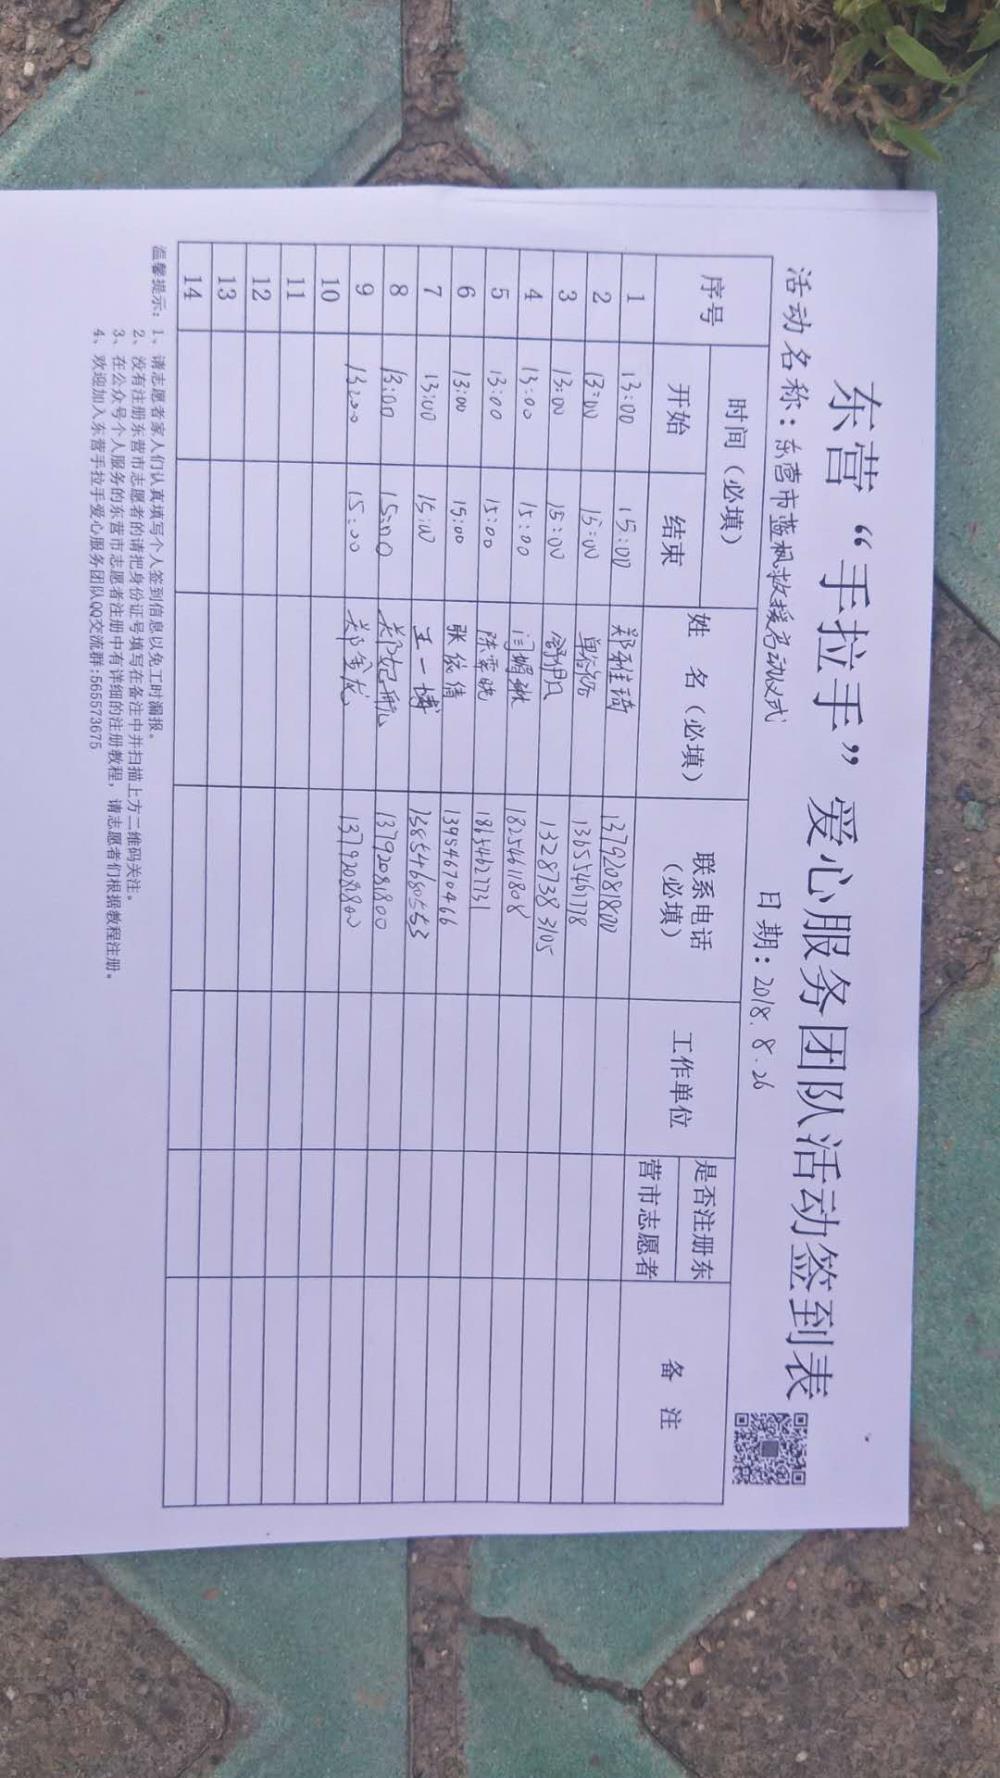 东营“手拉手”爱心服务团队活动签到表
活动名称：东营市蓝枫救援启动仪式 日期：2018.8.26
序号 时间（必填） 姓 名（必填） 联系电话（必填） 工作单位 是否注册东营市志愿者 备 注
开始 结束
1 13:00 15:00 郑雅琦 13792081800
2 13:00 15:00 13655461778
3 13:00 15:00 13287383105
4 13:00 15:00 18254611808
5 13:00 15:00 陈霏晓 18654627731
6 13:00 15:00 张依倩 13954670466
7 13:00 15:00 王一博
8 13:00 15:00 13792081800
9 13:00 15:00 13792081800
10
11
12
13
14
温馨提示：1、请志愿者家人们认真填写个人签到信息以免工时漏报。
2、没有注册东营市志愿者的请把身份证号填写在备注中并扫描上方二维码关注。
3、在公众号个人服务的东营市志愿者注册中有详细的注册教程，请志愿者们根据教程注册。
4、欢迎加入东营手拉手爱心服务团队QQ交流群:565573675